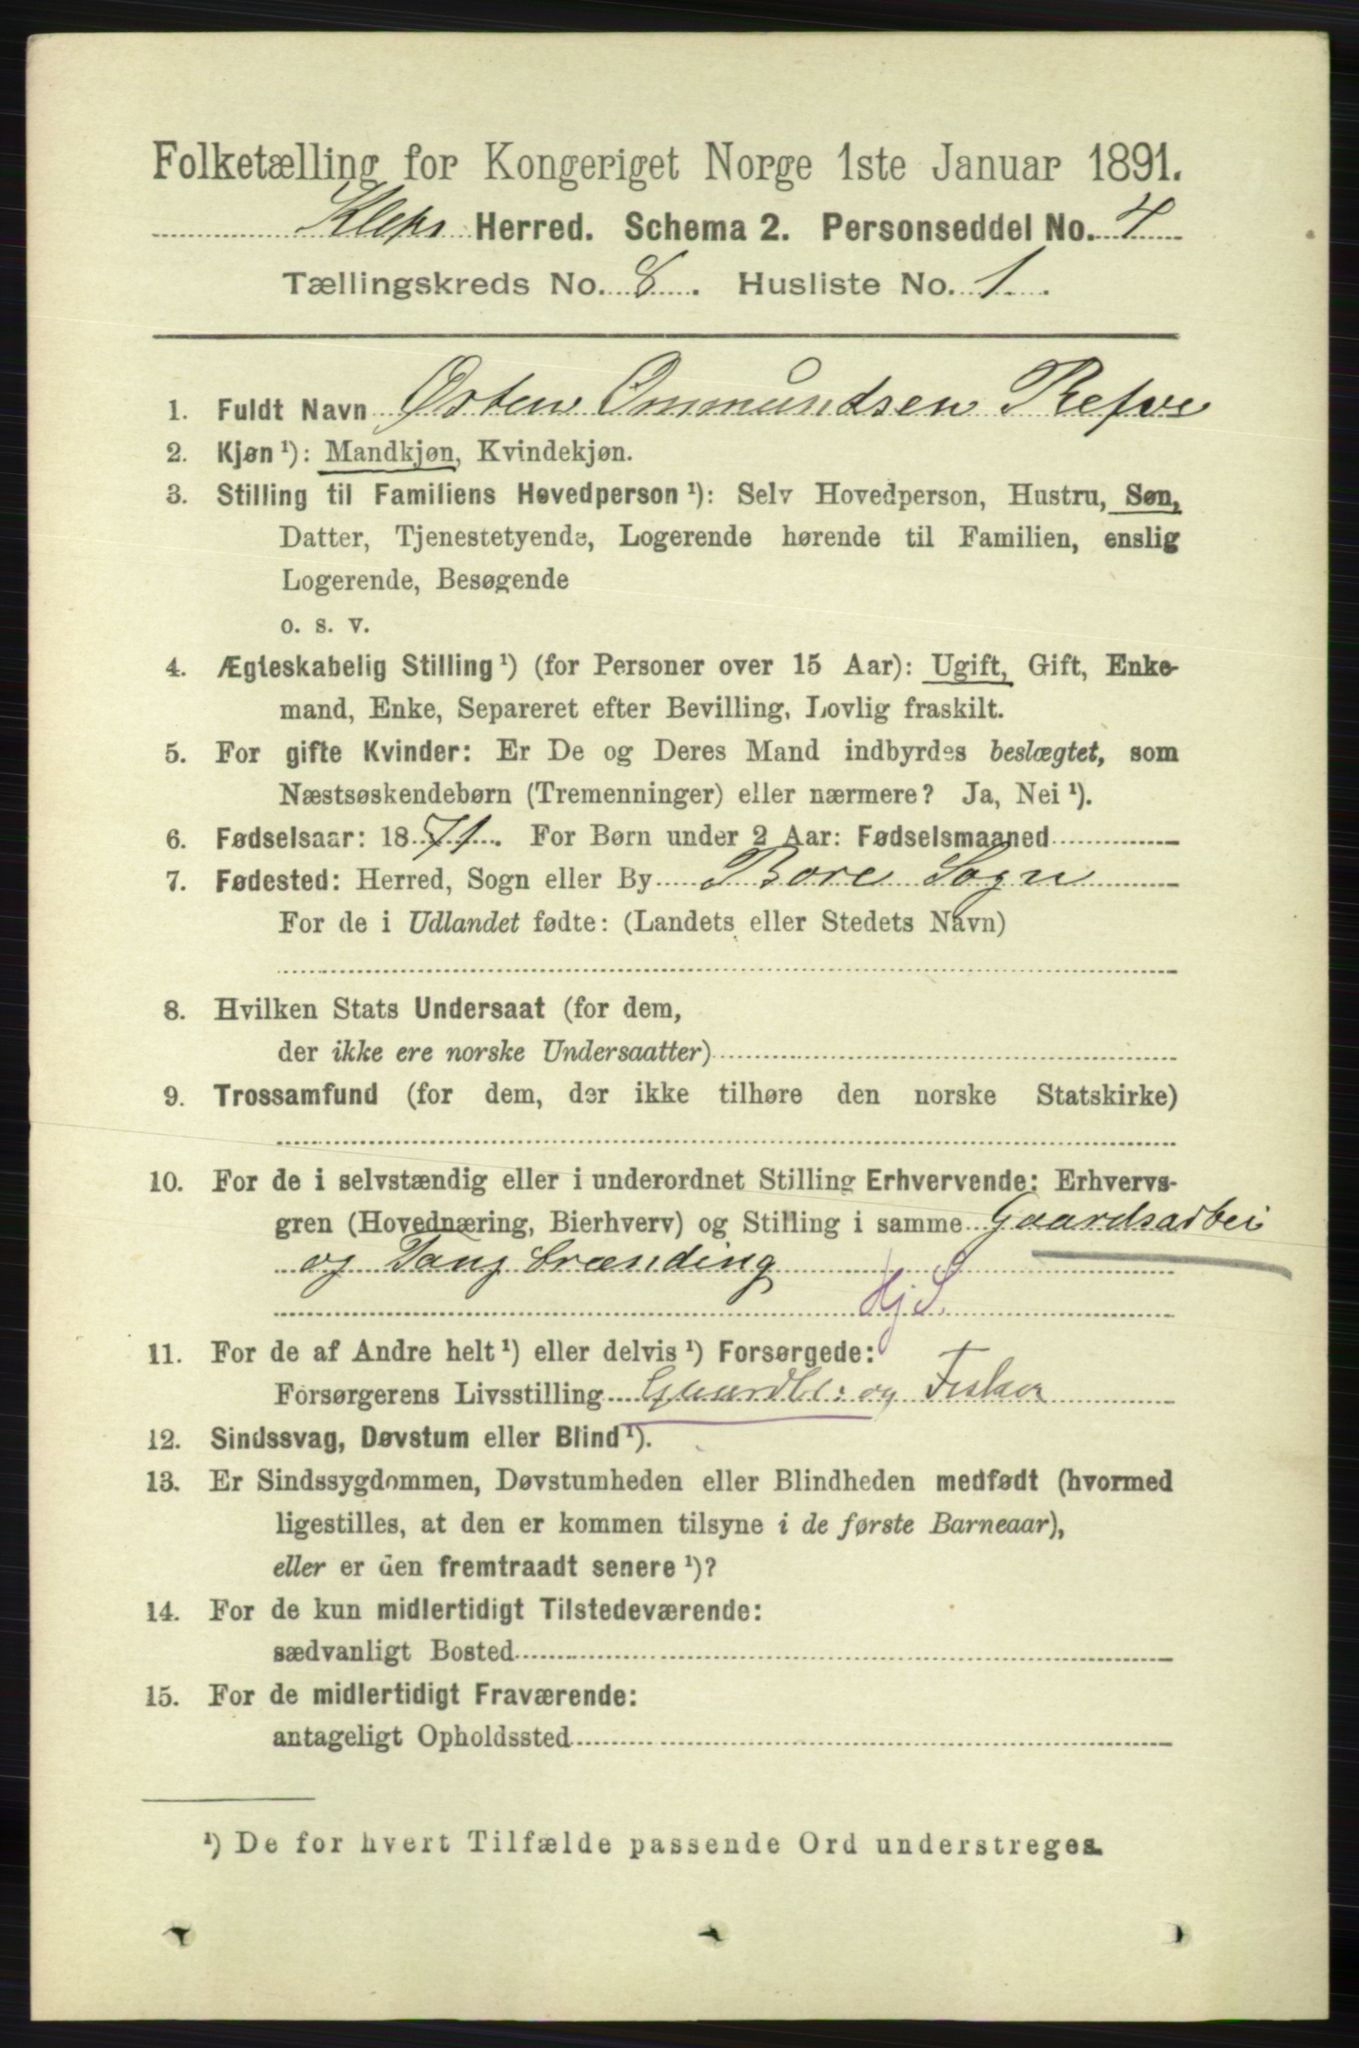 Folketælling for Kongeriget Norge 1ste Januar 1891.
Kleps Herred. Schema 2. Personseddel No. 4
Tællingskreds No. 8. Husliste No. 1.
1. Fuldt Navn Østen Ommundsen Refve
2. Kjøn ¹): Mandkjøn, Kvindekjøn.
3. Stilling til Familiens Hovedperson ¹): Selv Hovedperson, Hustru, Søn,
Datter, Tjenestetyende, Logerende hørende til Familien, enslig
Logerende, Besøgende
o. s. v.
4. Ægteskabelig Stilling ¹) (for Personer over 15 Aar): Ugift, Gift, Enke-
mand, Enke, Separeret efter Bevilling, Lovlig fraskilt.
5. For gifte Kvinder: Er De og Deres Mand indbyrdes beslægtet, som
Næstsøskendebørn (Tremenninger) eller nærmere? Ja, Nei ¹).
6. Fødselsaar: 1871. For Børn under 2 Aar: Fødselsmaaned
7. Fødested: Herred, Sogn eller By Bore Sogn
For de i Udlandet fødte: (Landets eller Stedets Navn)
8. Hvilken Stats Undersaat (for dem,
der ikke ere norske Undersaatter)
9. Trossamfund (for dem, der ikke tilhøre den norske Statskirke)
10. For de i selvstændig eller i underordnet Stilling Erhvervende: Erhvervs-
gren (Hovednæring, Bierhverv) og Stilling i samme Gaardsarbei
og Tang brænding
Hj S.
11. For de af Andre helt ¹) eller delvis ¹) Forsørgede:
Forsørgerens Livsstilling Gaardbr: og Fisker
12. Sindssvag, Døvstum eller Blind ¹).
13. Er Sindssygdommen, Døvstumheden eller Blindheden medfødt (hvormed
ligestilles, at den er kommen tilsyne i de første Barneaar),
eller er den fremtraadt senere ¹)?
14. For de kun midlertidigt Tilstedeværende:
sædvanligt Bosted
15. For de midlertidigt Fraværende:
antageligt Opholdssted
¹) De for hvert Tilfælde passende Ord understreges.